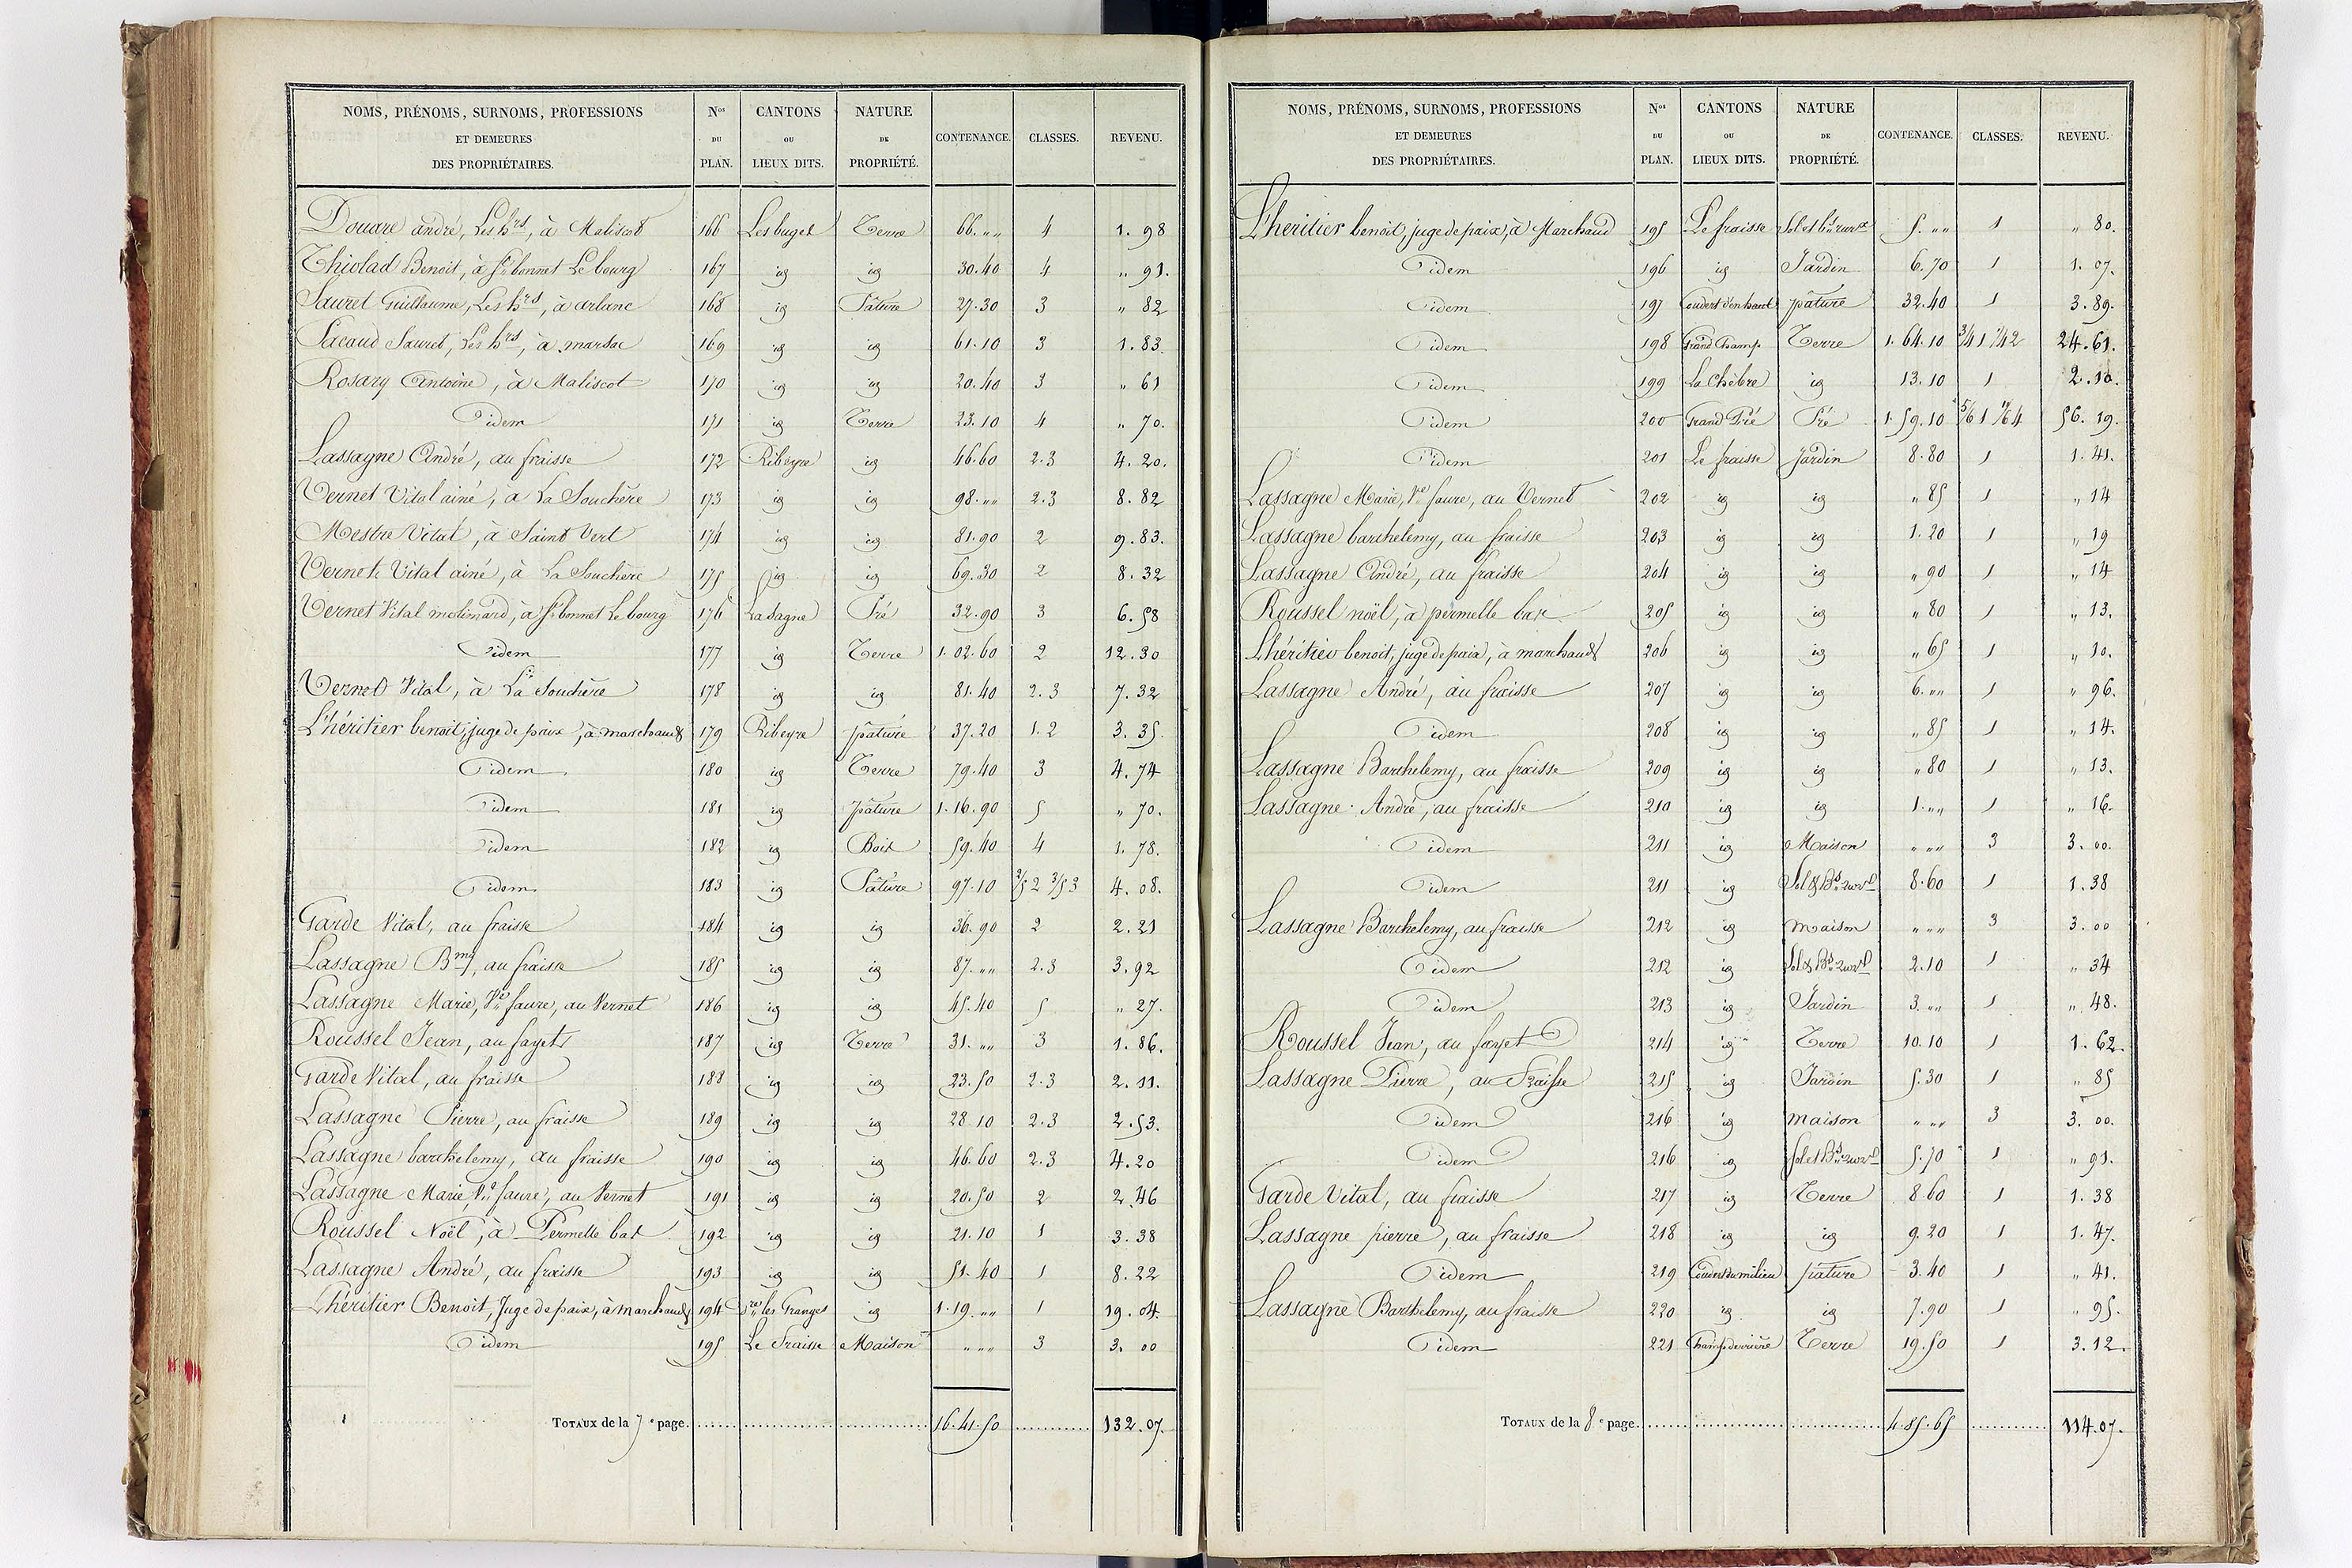 NOMS, PRÉNOMS, SURNOMS, PROFESSIONS ET DEMEURES DES PROPRIÉTAIRES. Nos DU PLAN. CANTONS OU LIEUX DITS. NATURE DE PROPRIÉTÉ. CONTENANCE. CLASSES. REVENU.
Douare andré, Les hrs, à Maliscot 166 Les buges Terre 66. „„ 4 1. 98
Thiolad Benoit, à St bonnet Le bourg 167 id id 30.40 4 „ 91.
Sauret Guillaume, Les hrs, à arlanc 168 id Pâture 27.30 3 „ 82
Pacaud Sauret, Les hrs, à marsac 169 id id 61.10 3 1.83.
Rosary Antoine, à Maliscot 170 id id 20.40 3 „ 61
idem 171 id Terre 23.10 4 „ 70.
Lassagne André, au fraisse 172 Ribeyre id 46.60 2.3 4.20.
Vernet Vital ainé, à La Souchère 173 id id 98.„„ 2.3 8.82
Mestre Vital, à Saint Vert 174 id id 81.90 2 9.83.
Vernet Vital ainé, à La Souchère 175 id id 69.30 2 8.32
Vernet Vital molimard, à St bonnet Le bourg 176 La sagne Pré 32.90 3 6.58
idem 177 id Terre 1.02.60 2 12.30
Vernet Vital, à La Souchère 178 id id 81.40 2.3 7.32
L'héritier benoit, juge de paix, à marchaud 179 Ribeyre pâture 37.20 1.2 3.35.
idem 180 id Terre 79.40 3 4.74
idem 181 id pâture 1.16.90 5 „ 70.
idem 182 id Bois 59.40 4 1.78.
idem 183 id Pâture 97.10 2/5 2 3/5 3 4.08.
Garde Vital, au fraisse 184 id id 36.90 2 2.21
Lassagne Bmy, au fraisse 185 id id 87.„„ 2.3 3.92
Lassagne Marie, Ve faure, au Vernet 186 id id 45.40 5 „ 27.
Roussel Jean, au fayet 187 id Terre 31.„„ 3 1.86.
Garde Vital, au fraisse 188 id id 23.50 2.3 2.11.
Lassagne Pierre, au fraisse 189 id id 28.10 2.3 2.53.
Lassagne barthelemy, au fraisse 190 id id 46.60 2.3 4.20
Lassagne Marie, Ve faure, au Vernet 191 id id 20.50 2 2.46
Roussel Noël, à Permelle bas 192 id id 21.10 1 3.38
Lassagne André, au fraisse 193 id id 51.40 1 8.22
L'héritier Benoit, Juge de paix, à marchaud 194 les Granges id 1.19.„„ 1 19.04.
idem 195 Le Fraisse Maison „„„ 3 3.00
TOTAUX de la 7e page. 16.41.50 132.07.
NOMS, PRÉNOMS, SURNOMS, PROFESSIONS ET DEMEURES DES PROPRIÉTAIRES. Nos DU PLAN. CANTONS OU LIEUX DITS. NATURE DE PROPRIÉTÉ. CONTENANCE. CLASSES. REVENU.
L'héritier benoit, juge de paix, à Marchaud 195 Le fraisse 5.„„ 1 „ 80.
idem 196 id Jardin 6.70 1 1.07.
idem 197 Couderd d'en haut pâture 32.40 1 3.89.
idem 198 Grand Champ Terre 1.64.10 3/4 1 1/4 2 24.61.
idem 199 La Chèbre id 13.10 1 2.10.
idem 200 Grand Pré Pré 1.59.10 5/6 1 1/6 4 56.19.
idem 201 Le fraisse Jardin 8.80 1 1.41.
Lassagne Marie, Ve faure, au Vernet 202 id id „85 1 „ 14
Lassagne barthelemy, au fraisse 203 id id 1.20 1 „ 19
Lassagne André, au fraisse 204 id id „90 1 „ 14
Roussel noël, à permelle bas 205 id id „80 1 „ 13.
L'héritier benoit, juge de paix, à marchaud 206 id id „65 1 „ 10.
Lassagne André, au fraisse 207 id id 6.„„ 1 „ 96.
idem 208 id id „85 1 „ 14.
Lassagne Barthelemy, au fraisse 209 id id „80 1 „ 13.
Lassagne André, au fraisse 210 id id 1.„„ 1 „ 16.
idem 211 id Maison „„„ 3 3.00.
idem 211 id 8.60 1 1.38
Lassagne Barthelemy, au fraisse 212 id maison „„„ 3 3.00
idem 212 id 2.10 1 „ 34
idem 213 id Jardin 3.„„ 1 „ 48.
Roussel Jean, au fayet 214 id Terre 10.10 1 1.62.
Lassagne Pierre, au Fraisse 215 id Jardin 5.30 1 „ 85
idem 216 id maison „„„ 3 3.00.
idem 216 id 5.70 1 „ 91.
Garde Vital, au fraisse 217 id Terre 8.60 1 1.38
Lassagne pierre, au fraisse 218 id id 9.20 1 1.47.
idem 219 Couderd du milieu pâture 3.40 1 „ 41.
Lassagne Barthelemy, au fraisse 220 id id 7.90 1 „ 95.
idem 221 Champ derrière Terre 19.50 1 3.12.
TOTAUX de la 8e page. 4.85.65 114.07.